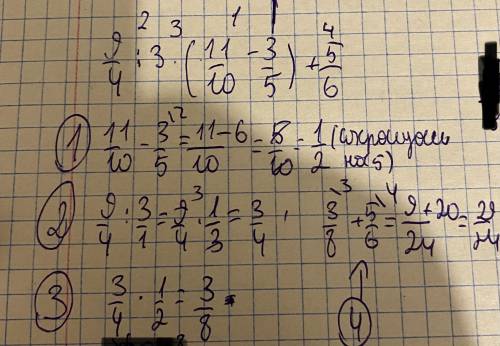 2 3 1 4
9/4 : 3 · (11/10 - 3/5) + 5/6
① 11/10 - 3/5 \2 = 11-6/10 = 5/10 = 1/2 (сокращаем на 5)
② 9/4 : 3/1 = 9/4 3 · 1/3 = 3/4 . 3/8 \3 + 5/6 \4 = 9+20/24 = 29/24
③ 3/4 · 1/2 = 3/8 ④